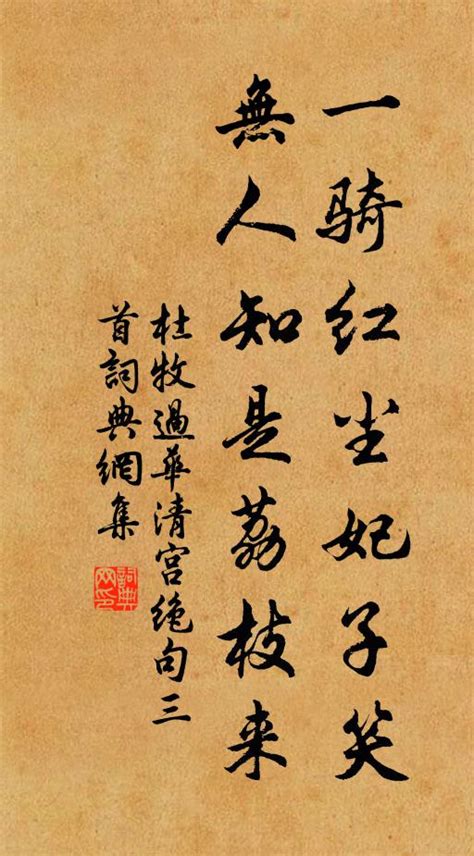 一骑红尘妃子笑
無人知是荔枝来
杜牧過華清宫绝句三
首詞典網集
詞典网印